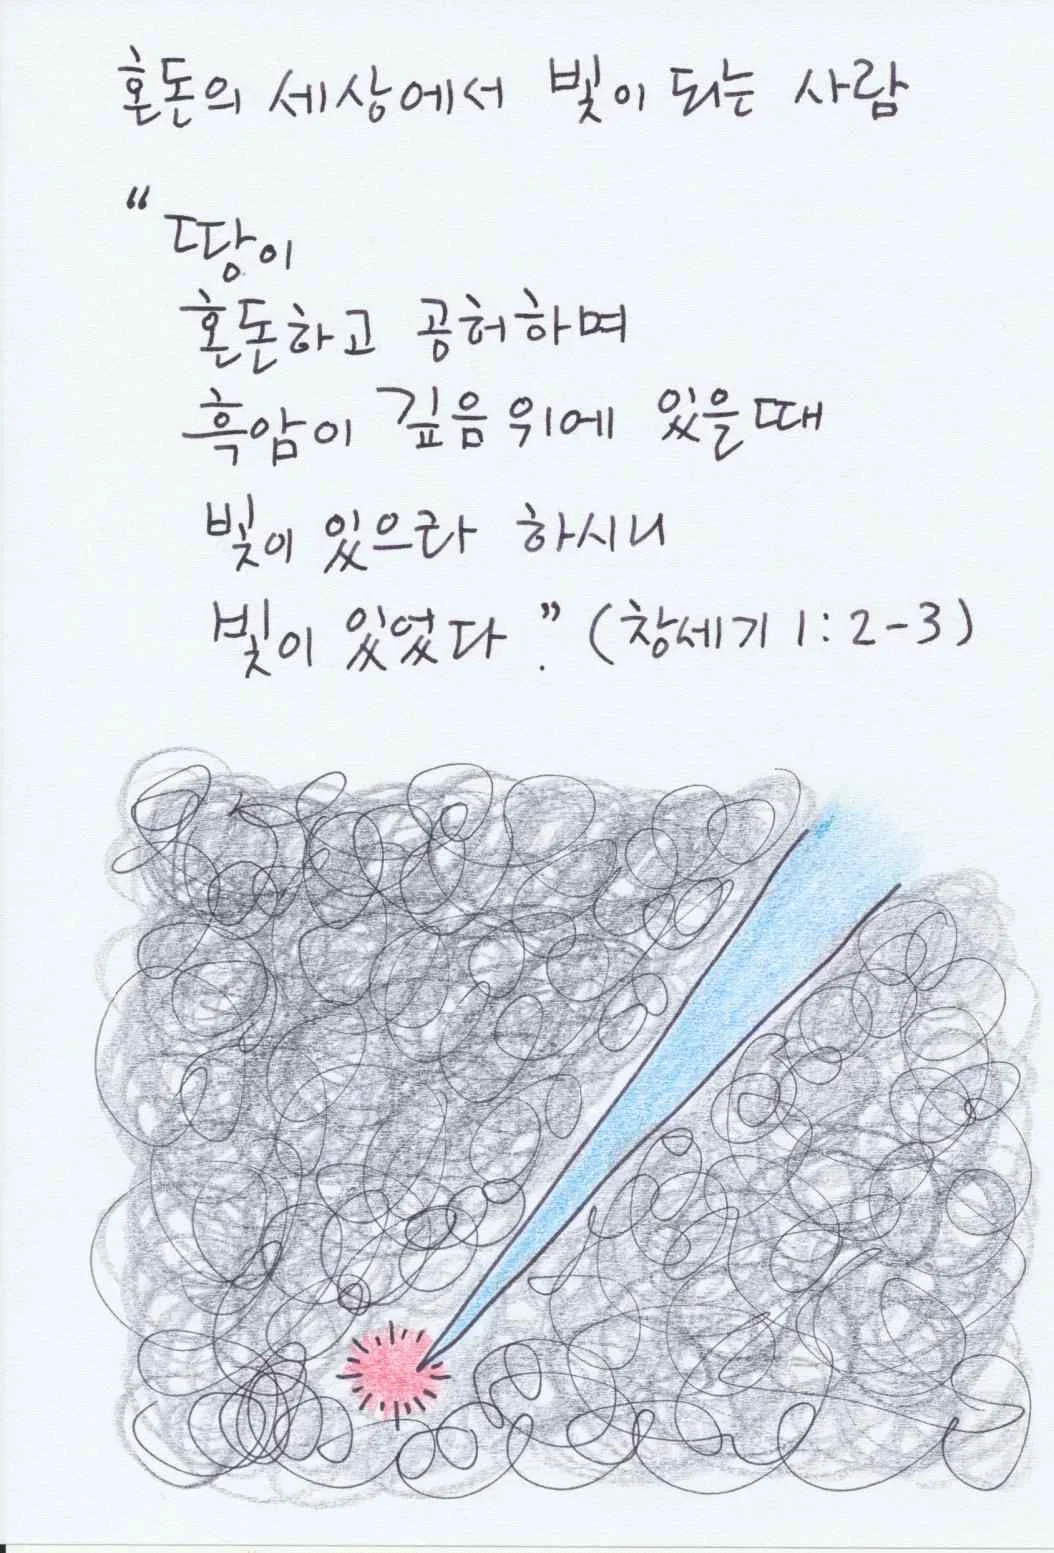 혼돈의 세상에서 빛이 되는 사람
“땅이
혼돈하고 공허하며
흑암이 깊음 위에 있을때
빛이 있으라 하시니
빛이 있었다.” (창세기 1:2-3)